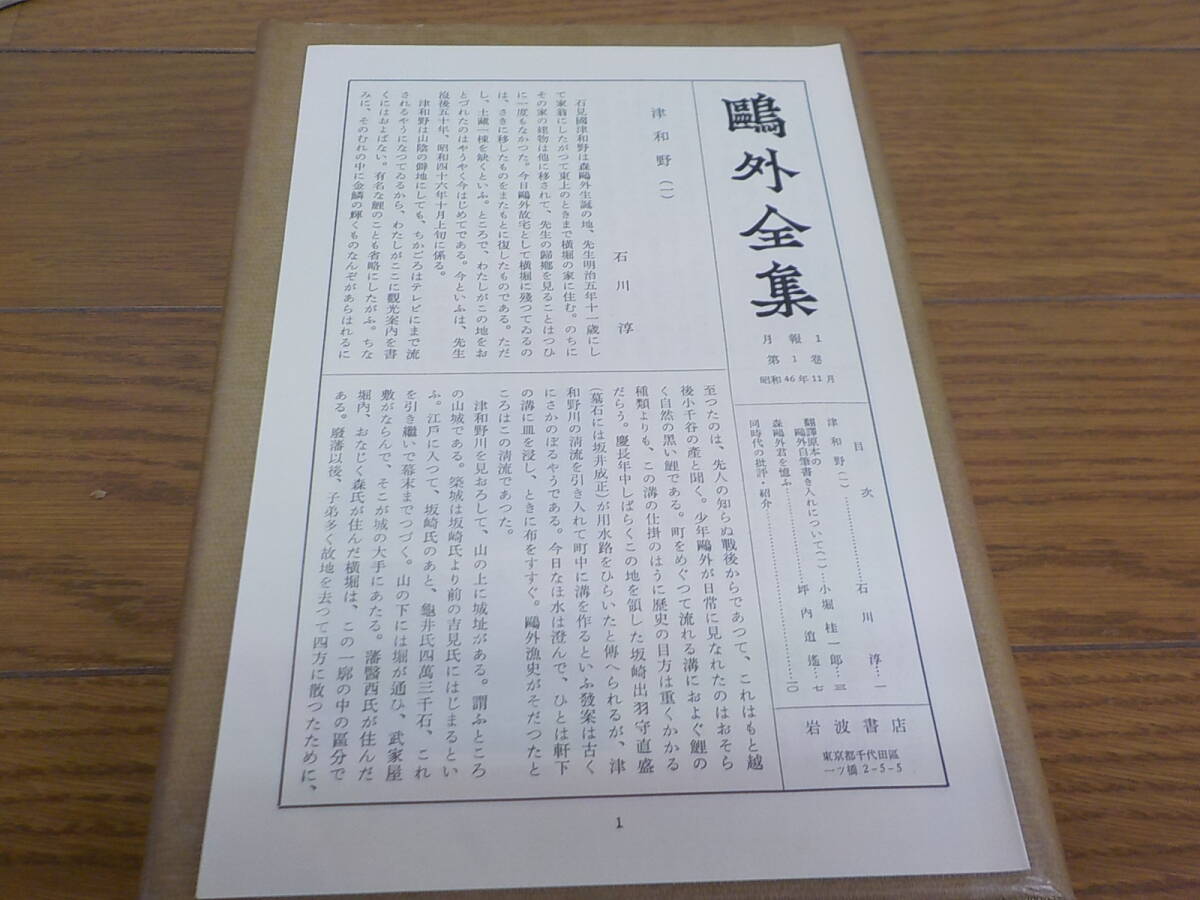 鷗外全集
月報1
第1卷
昭和46年11月
目次
津和野(一)…………石川淳…一
翻譯原本の
鷗外自筆書き入れについて(一)…小堀桂一郎…三
森鷗外君を憶ふ…………坪內逍遙…七
同時代の批評・紹介…………一〇
岩波書店
東京都千代田區
一ツ橋2-5-5
津和野(一)
石川淳
石見國津和野は森鷗外生誕の地、先生明治五年十一歲にし
て家翁にしたがつて東上のときまで橫堀の家に住む。のちに
その家の建物は他に移されて、先生の歸鄕を見ることはつひ
に一度もなかつた。今日鷗外故宅として橫堀に殘つてゐるの
は、さきに移したものをまたもとに復したものである。ただ
し、土藏一棟を缺くといふ。ところで、わたしがこの地をお
とづれたのはやうやく今はじめてである。今といふは、先生
沒後五十年、昭和四十六年十月上旬に係る。
津和野は山陰の僻地にしても、ちかごろはテレビにまで流
されるやうになつてゐるから、わたしがここに觀光案內を書
くにはおよばない。有名な鯉のことも省略にしたがふ。ちな
みに、そのむれの中に金鱗の輝くものなんぞがあらはれるに
至つたのは、先人の知らぬ戰後からであつて、これはもと越
後小千谷の產と聞く。少年鷗外が日常に見なれたのはおそら
く自然の黑い鯉である。町をめぐつて流れる溝におよぐ鯉の
種類よりも、この溝の仕掛のはうに歷史の目方は重くかかる
だらう。慶長年中しばらくこの地を領した坂崎出羽守直盛
(墓石には坂井成正)が用水路をひらいたと傳へられるが、津
和野川の淸流を引き入れて町中に溝を作るといふ發案は古く
にさかのぼるやうである。今日なほ水は澄んで、ひとは軒下
の溝に皿を浸し、ときに布をすすぐ。鷗外漁史がそだつたと
ころはこの淸流であつた。
津和野川を見おろして、山の上に城址がある。謂ふところ
の山城である。築城は坂崎氏より前の吉見氏にはじまるとい
ふ。江戶に入つて、坂崎氏のあと、龜井氏四萬三千石、これ
を引き繼いで幕末までつづく。山の下には堀が通ひ、武家屋
敷がならんで、そこが城の大手にあたる。藩醫西氏が住んだ
堀內、おなじく森氏が住んだ橫堀は、この一廓の中の區分で
ある。廢藩以後、子弟多く故地を去つて四方に散つたために、
1